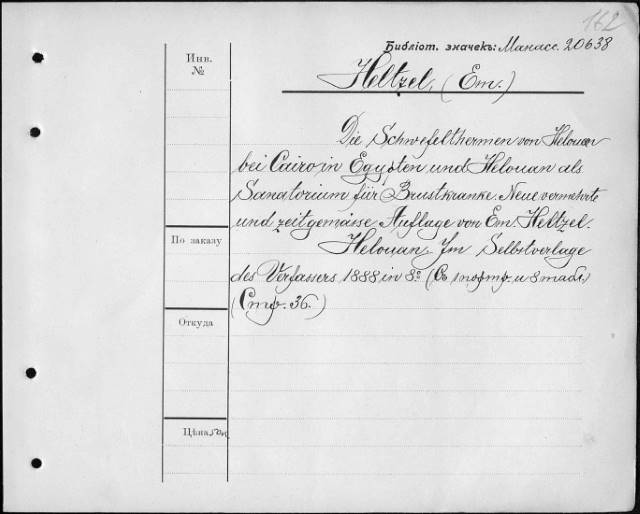 162
Библіот. значекъ: Манасс. 20638
Инв.
№
Heltzel, (Em.)
Die Schwefelthermen von Helouan
bei Cairo in Egypten und Helouan als
Sanatorium für Brustkranke. Neue vermehrte
und zeitgemässe Auflage von Em. Heltzel.
Helouan. Im Selbstverlage
des Verfassers 1888 in 8º (Съ портр. и 8 табл.)
(Стр. 36.)
По заказу
Откуда
Цѣна